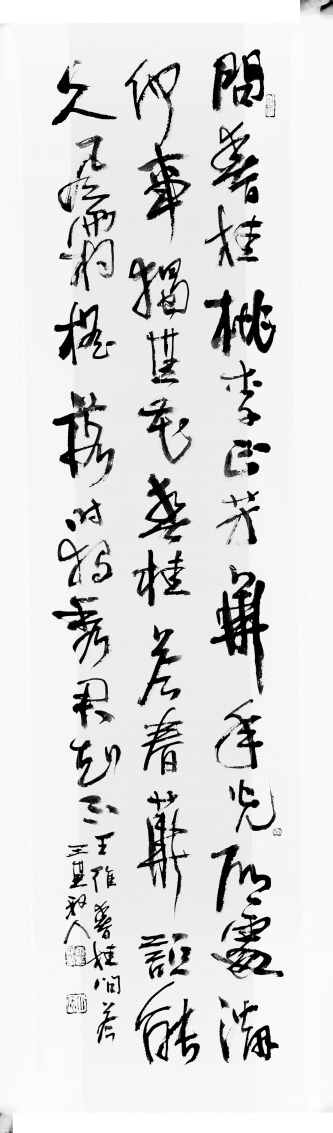 問春桂桃李正芳華年光隨處滿
何事獨無花春桂答春華詎能
久風霜搖落時獨秀君知不
王維春桂問答